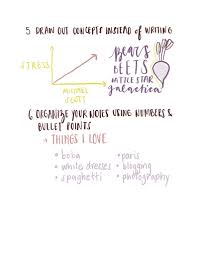 5 DRAW OUT CONCEPTS INSTEAD of WRITING
STRESS
MICHAEL
SCOTT
BEARS
bEETS
bATTLE STAR
galactica
6 ORGANIZE YOUR NOTES USING NUMBERS &
BULLET POINTS
THINGS I LOVE
• boba
• white dresses
• spaghetti
• paris
• blogging
• photography